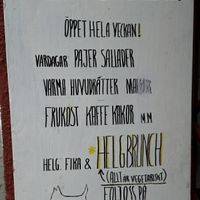 ÖPPET HELA VECKAN!
VARDAGAR PAJER SALLADER
VARMA HUVUDRÄTTER
FRUKOST KAFFE KAKOR M.M
HELG. FIKA & *HELGBRUNCH
(ALLT ÄR VEGETARISKT)
FÖLJ OSS PÅ